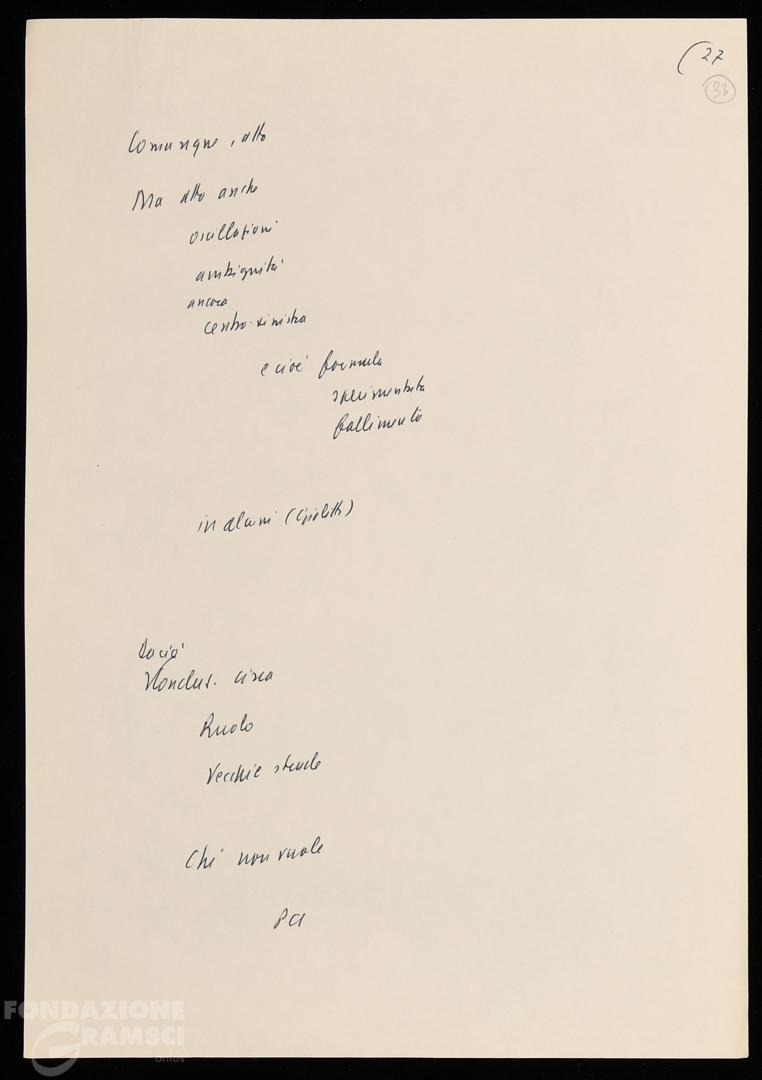 (27
33
Comunque, atto
Ma atto anche
oscillazioni
ambiguità
ancora
centro-sinistra
e cioè formula
sperimentata
fallimento
in alcuni (Cipolletta)
circa
Ruolo
Vecchie strade
Chi non vuole
PCI
FONDAZIONE
GRAMSCI
onlus